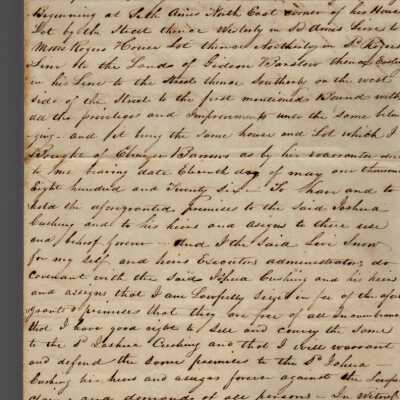 Beginning at Seth Ames North East corner of his House
Lot by the Street thence Westerly in Sd Ames Line to
Rogers House Lot thence Northerly in Sd Rogers
Line to the Lands of Gideon Barstow thence Easterly
in his Line to the Street thence Southerly on the west
side of the Street to the first mentioned Bound with
all the privileges and Improvements unto the same belon
-ging - and yet being the same house and Lot which I
Bought of Barrows as by his warrantee deed
to me bearing date Eleventh day of may one thousand
Eight hundred and Twenty six - To Have and to
hold the aforegranted premises to the said Joshua
Cushing and to his heirs and assigns to there use
and behoof forever - And I the said Levi Snow
for my self and heirs Executors administrators do
Covenant with the said Joshua Cushing and his heirs
and assigns, that I am Lawfully Seized in fee of the afore
granted premises that they are free of all incumbrance
that I have good right to sell and convey the same
to the Sd Joshua Cushing and that I will warrant
and defend the same premises to the Sd Joshua
Cushing his heirs and assigns forever against the Lawful
claims and demands of all persons - In Witness